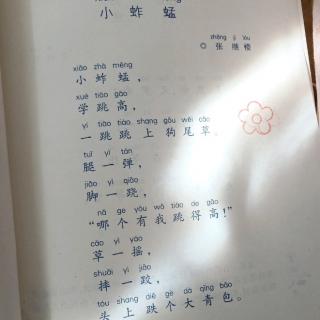 小蚱蜢
zhāng jì lóu
◎ 张继楼
xiǎo zhà měng
小蚱蜢，
xué tiào gāo
学跳高，
yí tiào tiào shang gǒu wěi cǎo
一跳跳上狗尾草。
tuǐ yì tán
腿一弹，
jiǎo yì qiào
脚一跷，
nǎ ge yǒu wǒ tiào de gāo
“哪个有我跳得高！”
cǎo yì yáo
草一摇，
shuāi yì jiāo
摔一跤，
tóu shang diē ge dà qīng bāo
头上跌个大青包。